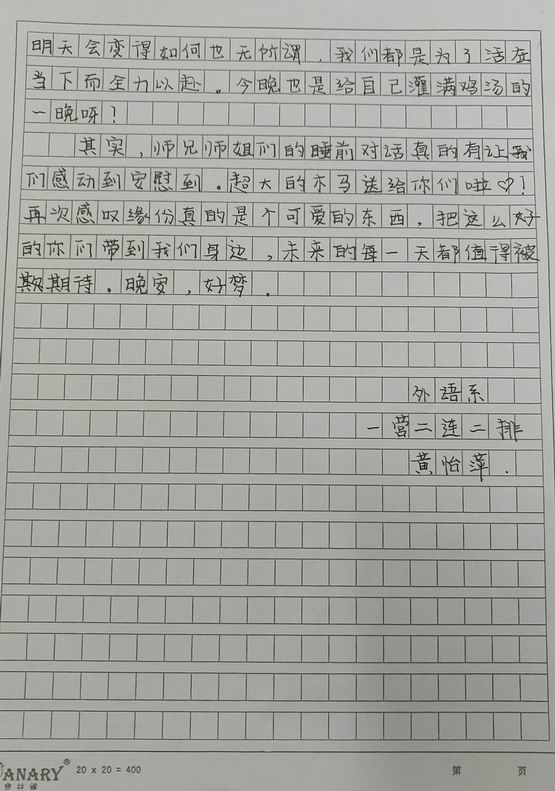 明天会变得如何也无所谓，我们都是为了活在
当下而全力以赴。今晚也是给自己灌满鸡汤的
一晚呀！
其实，师兄师姐们的睡前对话真的有让我
们感动到安慰到。超大的木马送给你们啦♡！
再次感叹缘份真的是个可爱的东西，把这么好
的你们带到我们身边，未来的每一天都值得被
期期待。晚安，好梦．
外语系
一营二连二排
黄怡萍．
ANARY® 20 x 20 = 400 第 页